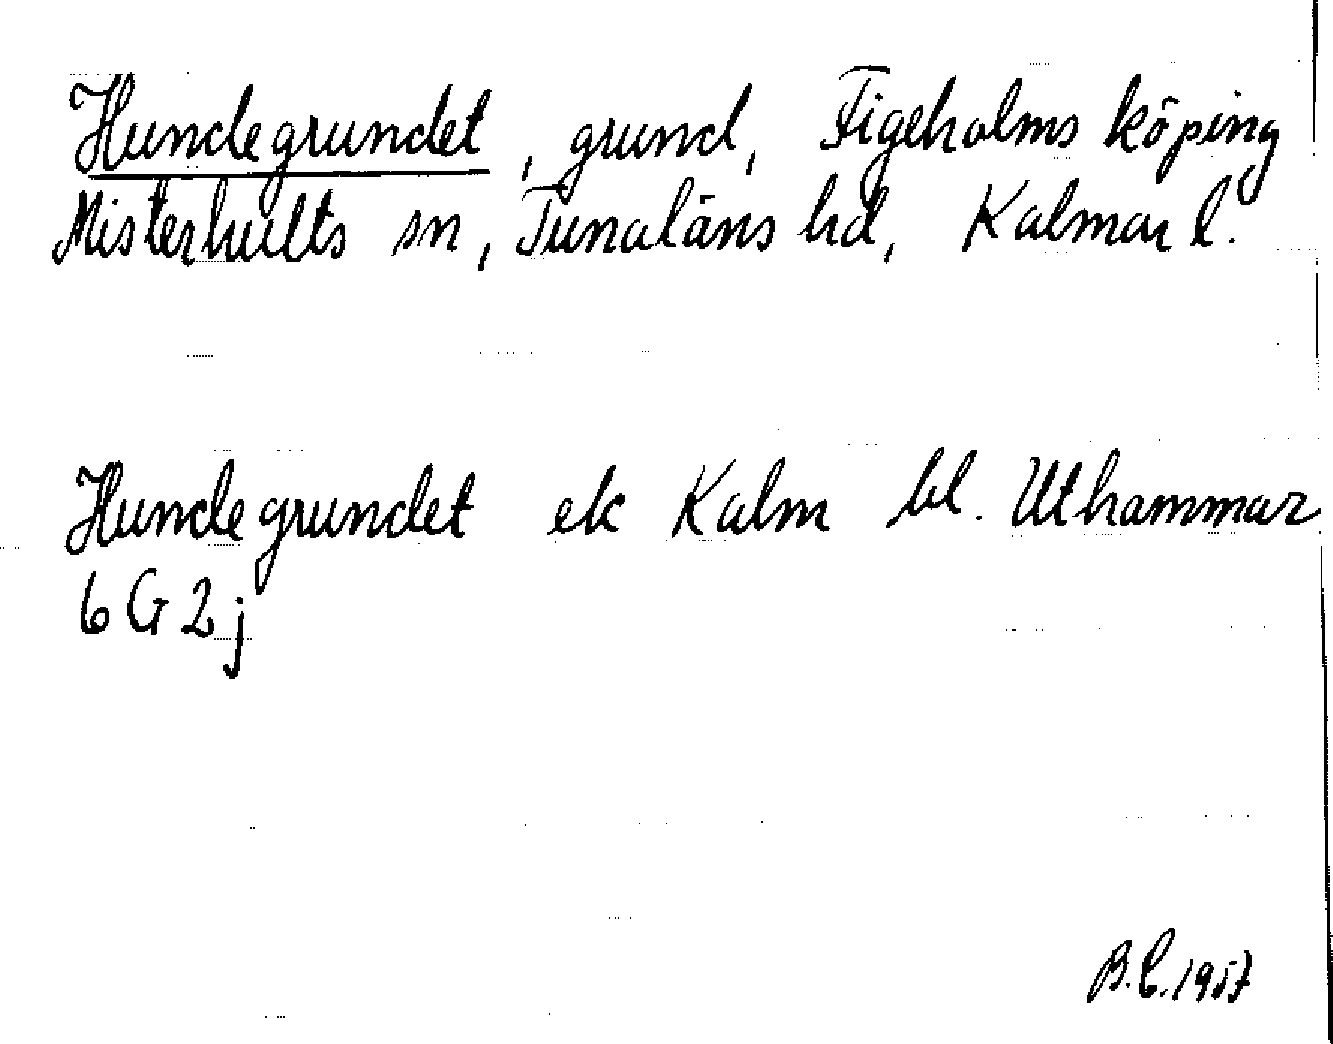 Hundegrundet, grund, Figeholms köping
Misterhults sn, Tunaläns hd, Kalmar l.
Hundegrundet ek Kalm bl. Uthammar
6 G 2 j
B.C. 1957